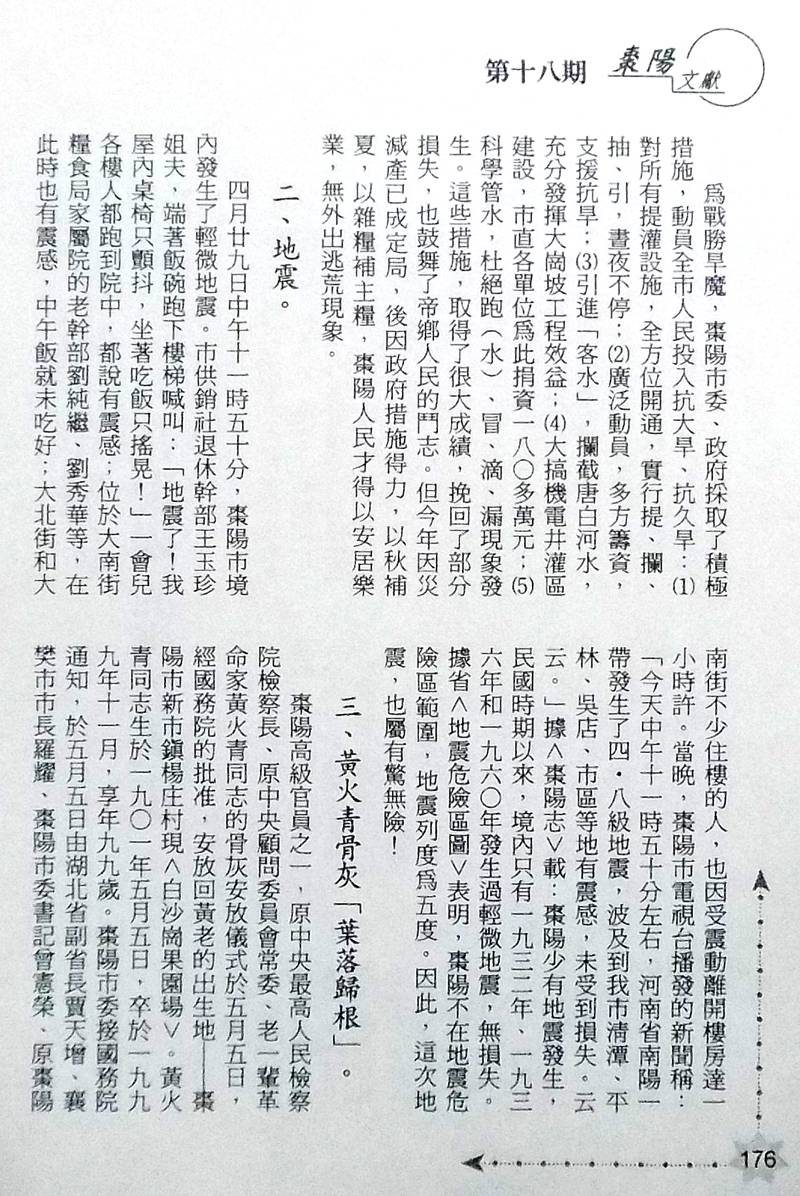 棗陽文獻
第十八期
為戰勝旱魔，棗陽市委、政府採取了積極
措施，動員全市人民投入抗大旱、抗久旱：⑴
對所有提灌設施，全方位開通，實行提、攔、
抽、引，晝夜不停；⑵廣泛動員，多方籌資，
支援抗旱；⑶引進「客水」，攔截唐白河水，
充分發揮大崗坡工程效益；⑷大搞機電井灌區
建設，市直各單位為此捐資一八○多萬元；⑸
科學管水，杜絕跑（水）、冒、滴、漏現象發
生。這些措施，取得了很大成績，挽回了部分
損失，也鼓舞了帝鄉人民的鬥志。但今年因災
減產已成定局，後因政府措施得力，以秋補
夏，以雜糧補主糧，棗陽人民才得以安居樂
業，無外出逃荒現象。
二、地震。
四月廿九日中午十一時五十分，棗陽市境
內發生了輕微地震。市供銷社退休幹部王玉珍
姐夫，端著飯碗跑下樓梯喊叫：「地震了！我
屋內桌椅只顫抖，坐著吃飯只搖晃！」一會兒
各樓人都跑到院中，都說有震感；位於大南街
糧食局家屬院的老幹部劉純繼、劉秀華等，在
此時也有震感，中午飯就未吃好；大北街和大
南街不少住樓的人，也因受震動離開樓房達一
小時許。當晚，棗陽市電視台播發的新聞稱：
「今天中午十一時五十分左右，河南省南陽一
帶發生了四·八級地震，波及到我市清潭、平
林、吳店、市區等地有震感，未受到損失。云
云。」據＜棗陽志＞載：棗陽少有地震發生，
民國時期以來，境內只有一九三二年、一九三
六年和一九六○年發生過輕微地震，無損失。
據省＜地震危險區圖＞表明，棗陽不在地震危
險區範圍，地震列度為五度。因此，這次地
震，也屬有驚無險！
三、黃火青骨灰「葉落歸根」。
棗陽高級官員之一，原中央最高人民檢察
院檢察長、原中央顧問委員會常委、老一輩革
命家黃火青同志的骨灰安放儀式於五月五日，
經國務院的批准，安放回黃老的出生地——棗
陽市新市鎮楊庄村現＜白沙崗果園場＞。黃火
青同志生於一九○一年五月五日，卒於一九九
九年十一月，享年九九歲。棗陽市委接國務院
通知，於五月五日由湖北省副省長賈天增、襄
樊市市長羅耀、棗陽市委書記曾憲榮、原棗陽
176